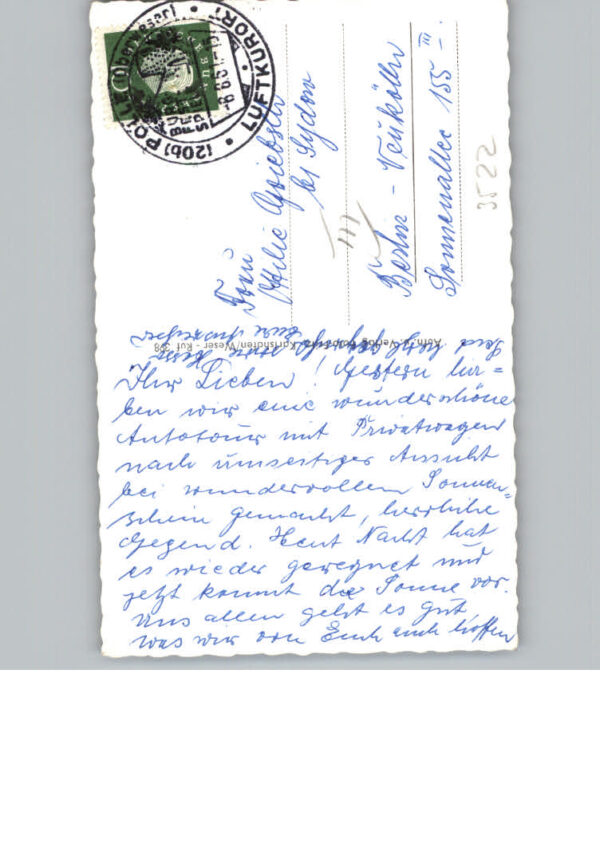 (20b) POLLE (Oberweser)
LUFTKURORT
-8.6.61-
Frau
Ottilie
bei Sydow
Berlin - Neukölln
Sonnenallee 155 III
3522
Karlshafen/Weser - Ruf 398
Ihr Lieben! Gestern ha=
ben wir eine wunderschöne
Autotour mit Privatwagen
nach umseitiger Ansicht
bei wundervollem Sonnen=
schein gemacht, herrliche
Gegend. Heut Nacht hat
es wieder geregnet und
jetzt kommt die Sonne vor.
Uns allen geht es gut,
was wir von Euch auch hoffen